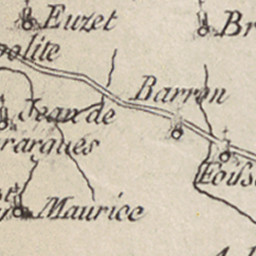 Euzet
Br
polite
Barron
Jean de
rargues
Fouss
Maurice